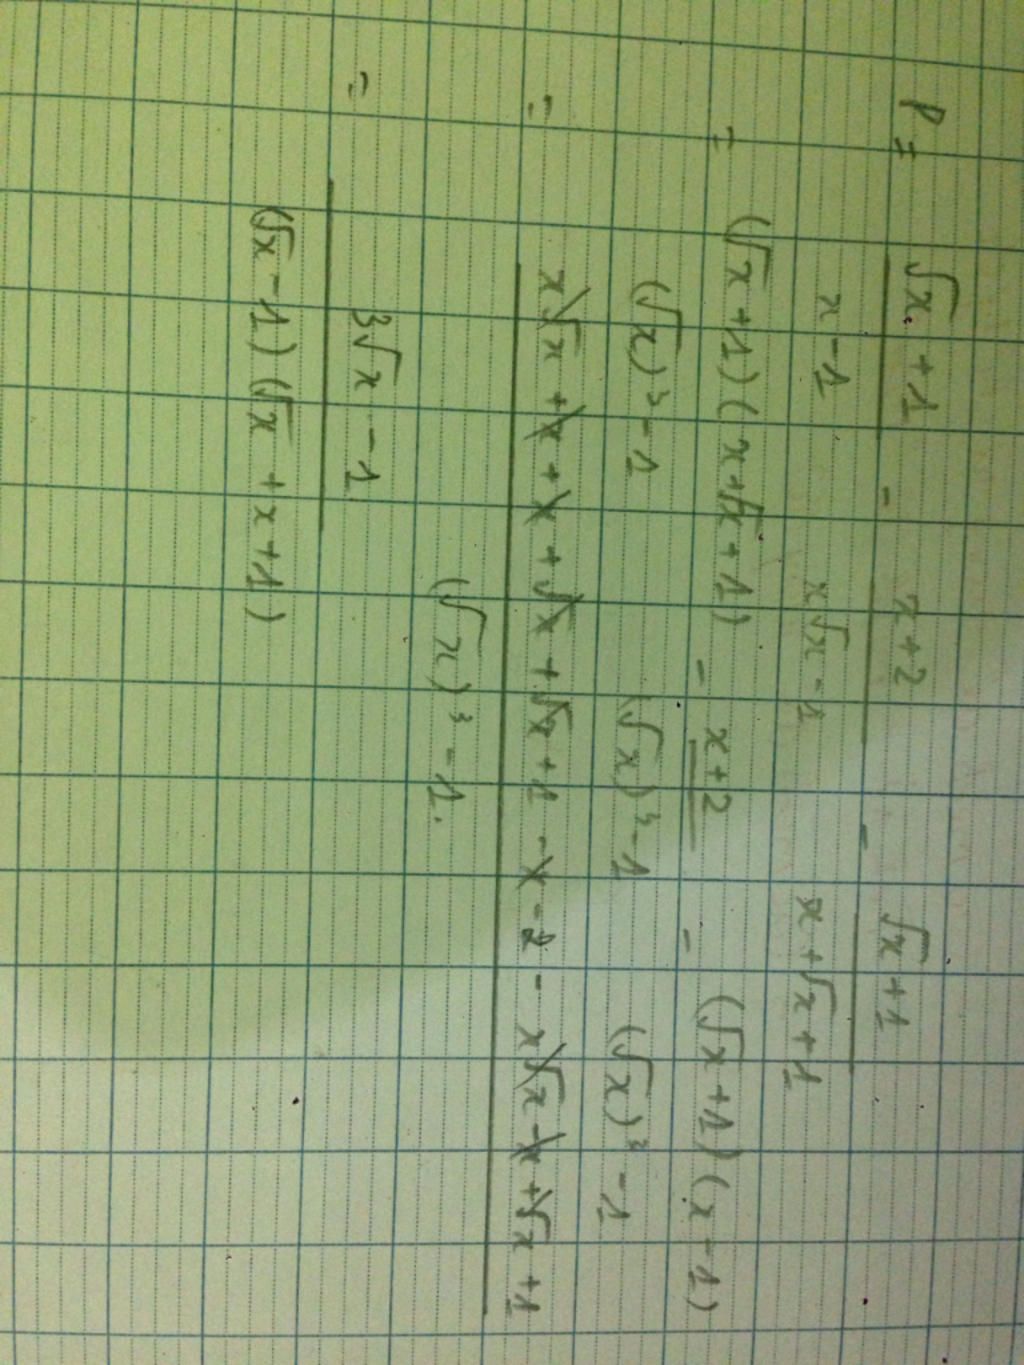 P = (√x + 1)/(x - 1) - (x + 2)/(x√x - 1) - (√x + 1)/(x + √x + 1)
= (√x + 1)(x + √x + 1)/((√x)³ - 1) - (x + 2)/((√x)³ - 1) - (√x + 1)(x - 1)/((√x)³ - 1)
= (x√x + x + x + √x + √x + 1 - x - 2 - x√x - x + √x + 1)/((√x)³ - 1.)
= (3√x - 1)/((√x - 1)(√x + x + 1))